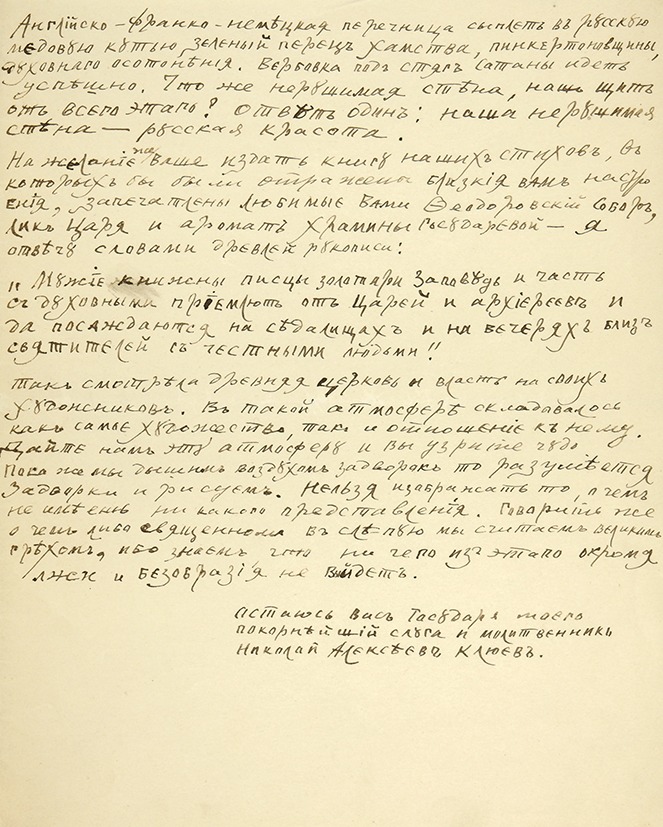 Англійско-франко-немѣцкая перечница сыплетъ въ русскую
медовую кутью, зеленый перецъ хамства, пинкертоновщины,
духовнаго осотонѣнія. Вербовка подъ стягъ сатаны идетъ
успѣшно. Что же нерушимая стѣна, нашъ щитъ
отъ всего этаго? Отвѣтъ одинъ: наша нерушимая
стѣна — русская красота.
На желаніе же Ваше издать книгу нашихъ стиховъ, въ
которыхъ бы были отражены близкія вамъ настро
енія, запечатлены любимые Вами Ѳеодоровскій соборъ,
ликъ Царя и ароматъ храмины государевой — я
отвѣчу словами древлей рукописи:
"Мужіе книжны писцы золотари заповѣдь и часть
съ духовными пріемлютъ отъ царей и архіереевъ и
да посаждаются на сѣдалищахъ и на вечеряхъ близъ
святителей съ честными людьми!!
Такъ смотрѣла древняя церковь и власть на своихъ
художниковъ. Въ такой атмосферѣ складовалось
какъ самое художество, такъ и отношеніе къ нему.
Дайте намъ эту атмосферу и вы узрите чудо
Пока же мы дышимъ воздухомъ задворокъ то разумѣется
Задворки и рисуемъ. Нельзя изображать то, о чемъ
не имѣешь ни какого представленія. Говорить же
о чемъ либо священномъ въ слѣпую мы считаемъ великимъ
грѣхомъ, ибо знаемъ что ни чего изъ этаго окромя
лжи и безобразія не выйдетъ.
Остаюсь Васъ Государя моего
покорнѣйшій слуга и молитвенникъ
Николай Алексѣевъ Клюевъ.